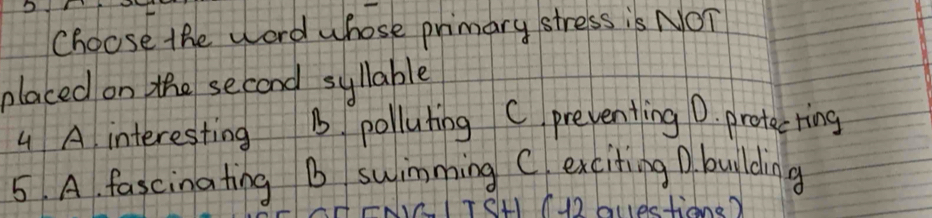 Choose the word whose primary stress is NOT
placed on the second syllable
4 A. interesting B. polluting C. preventing D. protecting
5. A. fascinating B swimming C. exciting D. building
ENGLISH (12 questions)